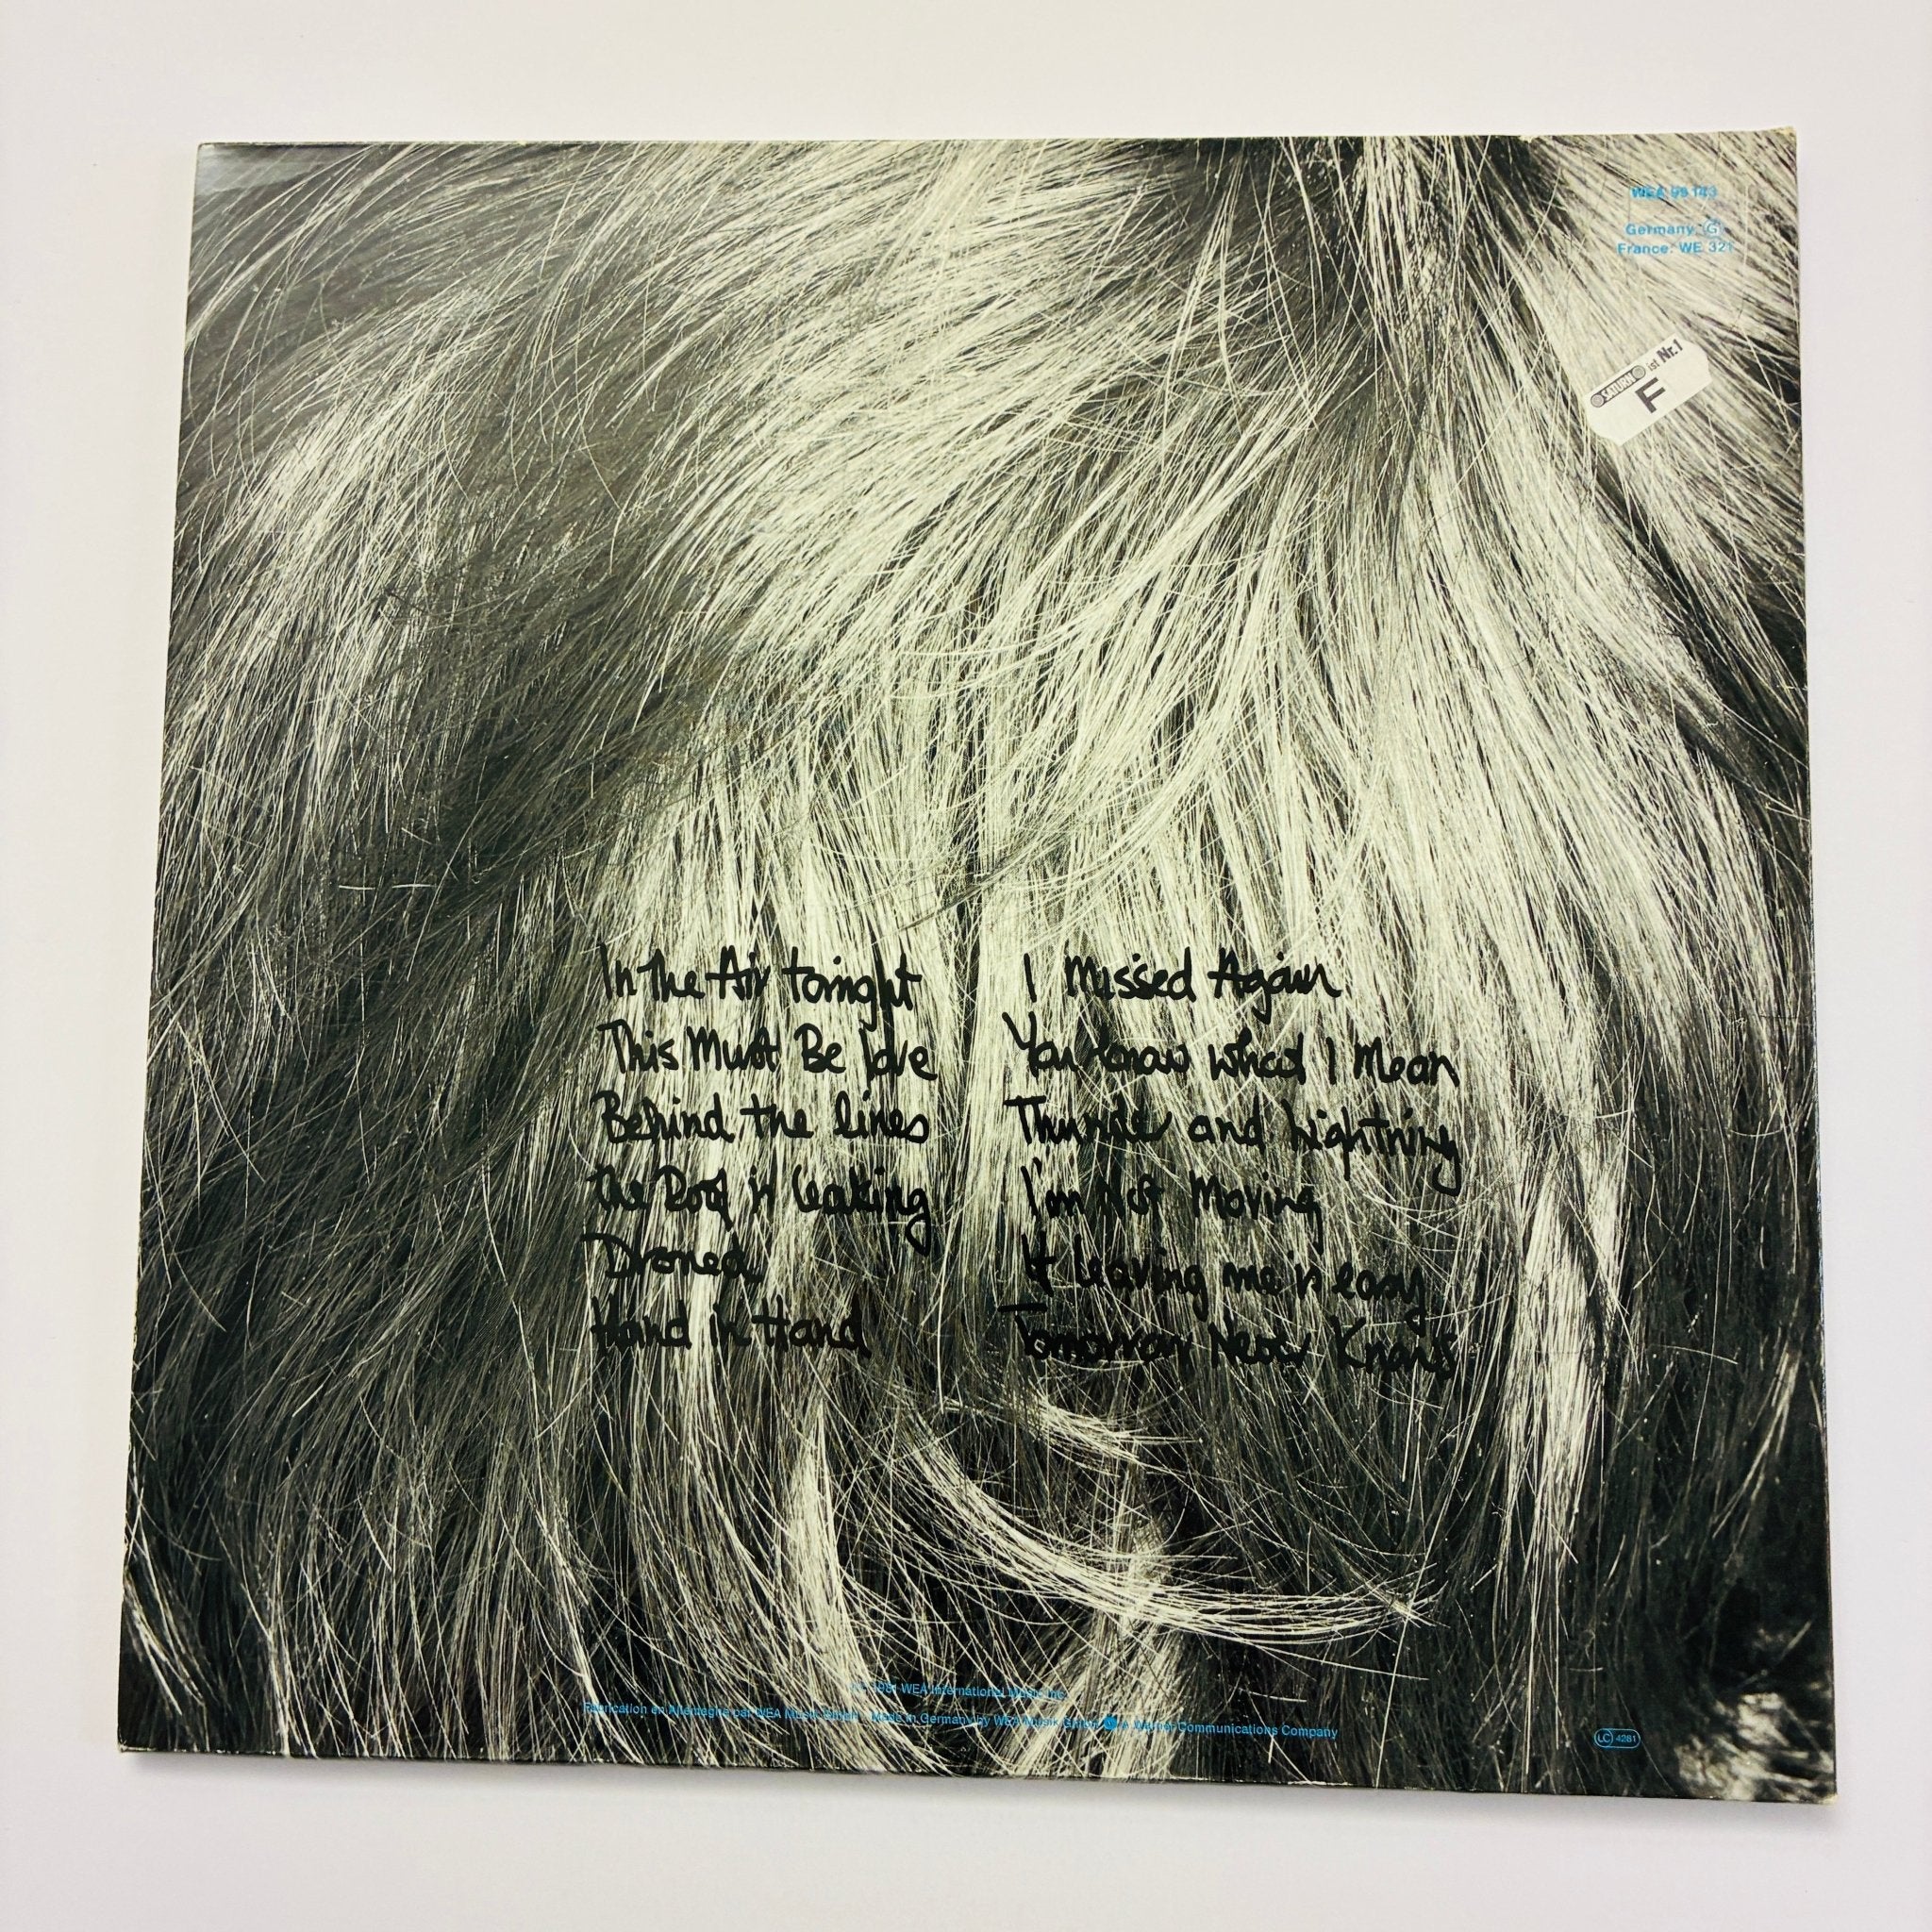 WEA 99 143
Germany: G
France: WE 321
SATURN ist Nr.1
F
In the Air tonight
This Must Be love
Behind the lines
the Roof is leaking
Droned
Hand in Hand
I Missed Again
You know what I Mean
Thunder and Lightning
I'm Not Moving
If leaving me is easy
Tomorrow Never Knows
1981 WEA International Music Inc.
Fabrication en Allemagne par WEA Musik GmbH · Made in Germany by WEA Musik GmbH A Warner Communications Company
LC 4281